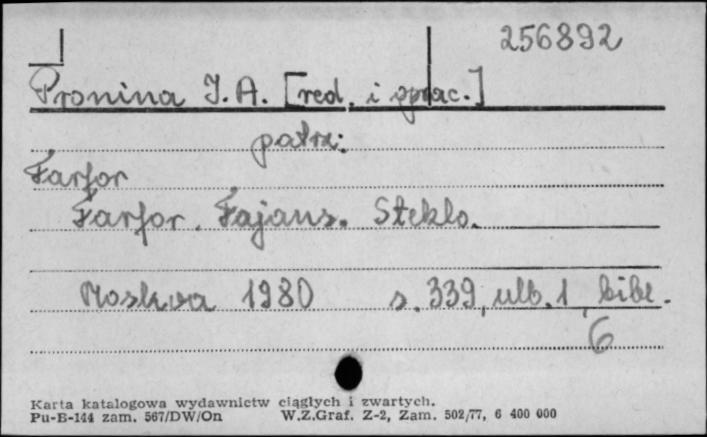 256892
Pronina I. A. [red. i oprac.]
patrz:
Farfor
Farfor. Fajans. Steklo.
Moskva 1980 s. 339, ulb. 1, bibl.
6
Karta katalogowa wydawnictw ciągłych i zwartych.
Pu-E-144 zam. 567/DW/On W.Z.Graf. Z-2, Zam. 502/77, 6 400 000